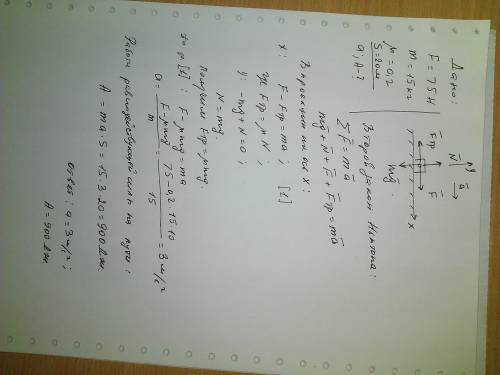 Дано:
F = 75 Н
m = 15 кг
μ = 0,2
S = 20 м
a; A - ?
y
N̄
ā
F̄тр
F̄
x
mḡ
Второй закон Ньютона:
ΣF̄ = mā
mḡ + N̄ + F̄ + F̄тр = mā
В проекции на ось x:
x: F - Fтр = ma; [1]
где Fтр = μN;
y: -mg + N = 0;
N = mg.
Получим Fтр = μmg.
[1]: F - μmg = ma
a = F - μmg / m = 75 - 0,2·15·10 / 15 = 3 м/с²
Работа равнодействующей силы на пути:
A = ma·S = 15·3·20 = 900 Дж.
Ответ: a = 3 м/с²;
A = 900 Дж.